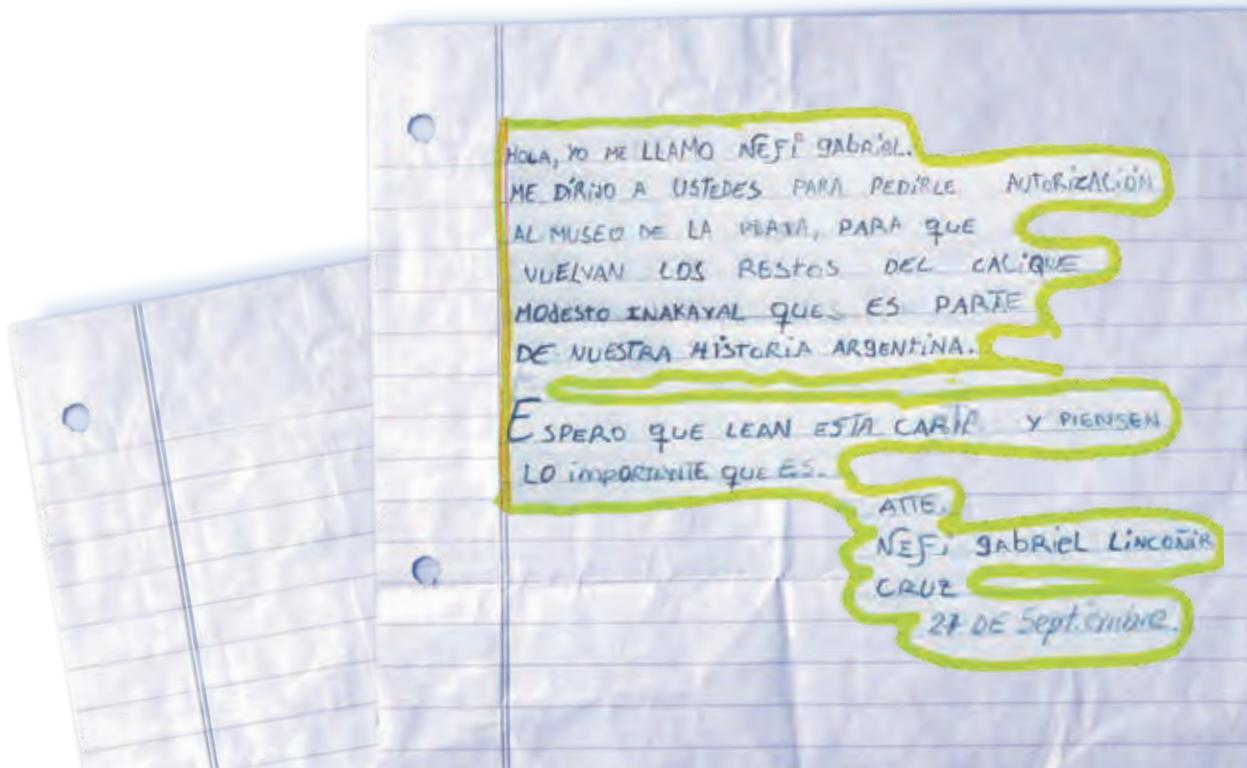 HOLA, YO ME LLAMO NEFI gabriel.
ME DIRIJO A USTEDES PARA PEDIRLE AUTORIZACIÓN
AL MUSEO DE LA PLATA, PARA QUE
VUELVAN LOS RESTOS DEL CACIQUE
MODESTO INAKAYAL QUE ES PARTE
DE NUESTRA HISTORIA ARGENTINA.
ESPERO QUE LEAN ESTA CARTA Y PIENSEN
LO IMPORTANTE QUE ES.
ATTE.
NEFI gabriel LINCOÑIR
CRUZ
27 DE Septiembre.